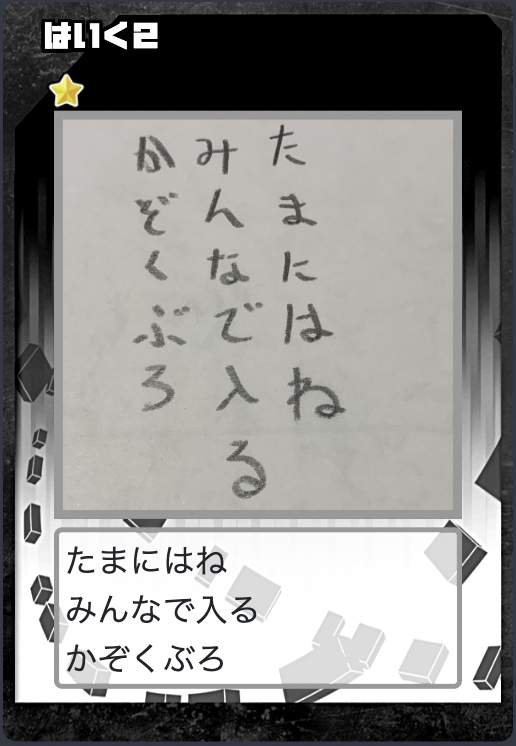 はいく2
たまにはね
みんなで入る
かぞくぶろ
たまにはね
みんなで入る
かぞくぶろ